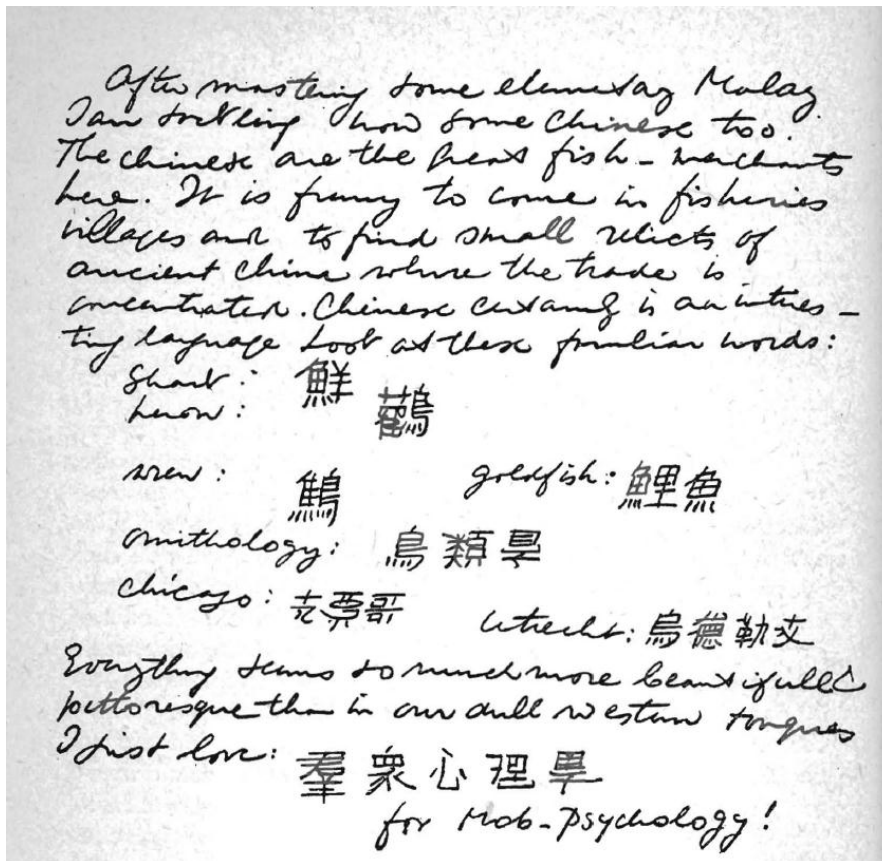 After mastering some elementary Malay
I am tackling now some Chinese too.
The chinese are the great fish-merchants
here. It is funny to come in fisheries
villages and to find small relicts of
ancient china where the trade is
concentrated. Chinese certainly is an interes-
ting language Look at these familiar words:
Shark: 鮮
heron: 鸛
wren: goldfish: 鯉魚
ornithology: 鳥類學
chicago: 票哥 Utrecht: 烏德勒支
Everything seems so much more beautiful &
pittoresque than in our dull western tongues
I just love: 羣衆心理學
for Mob-Psychology!